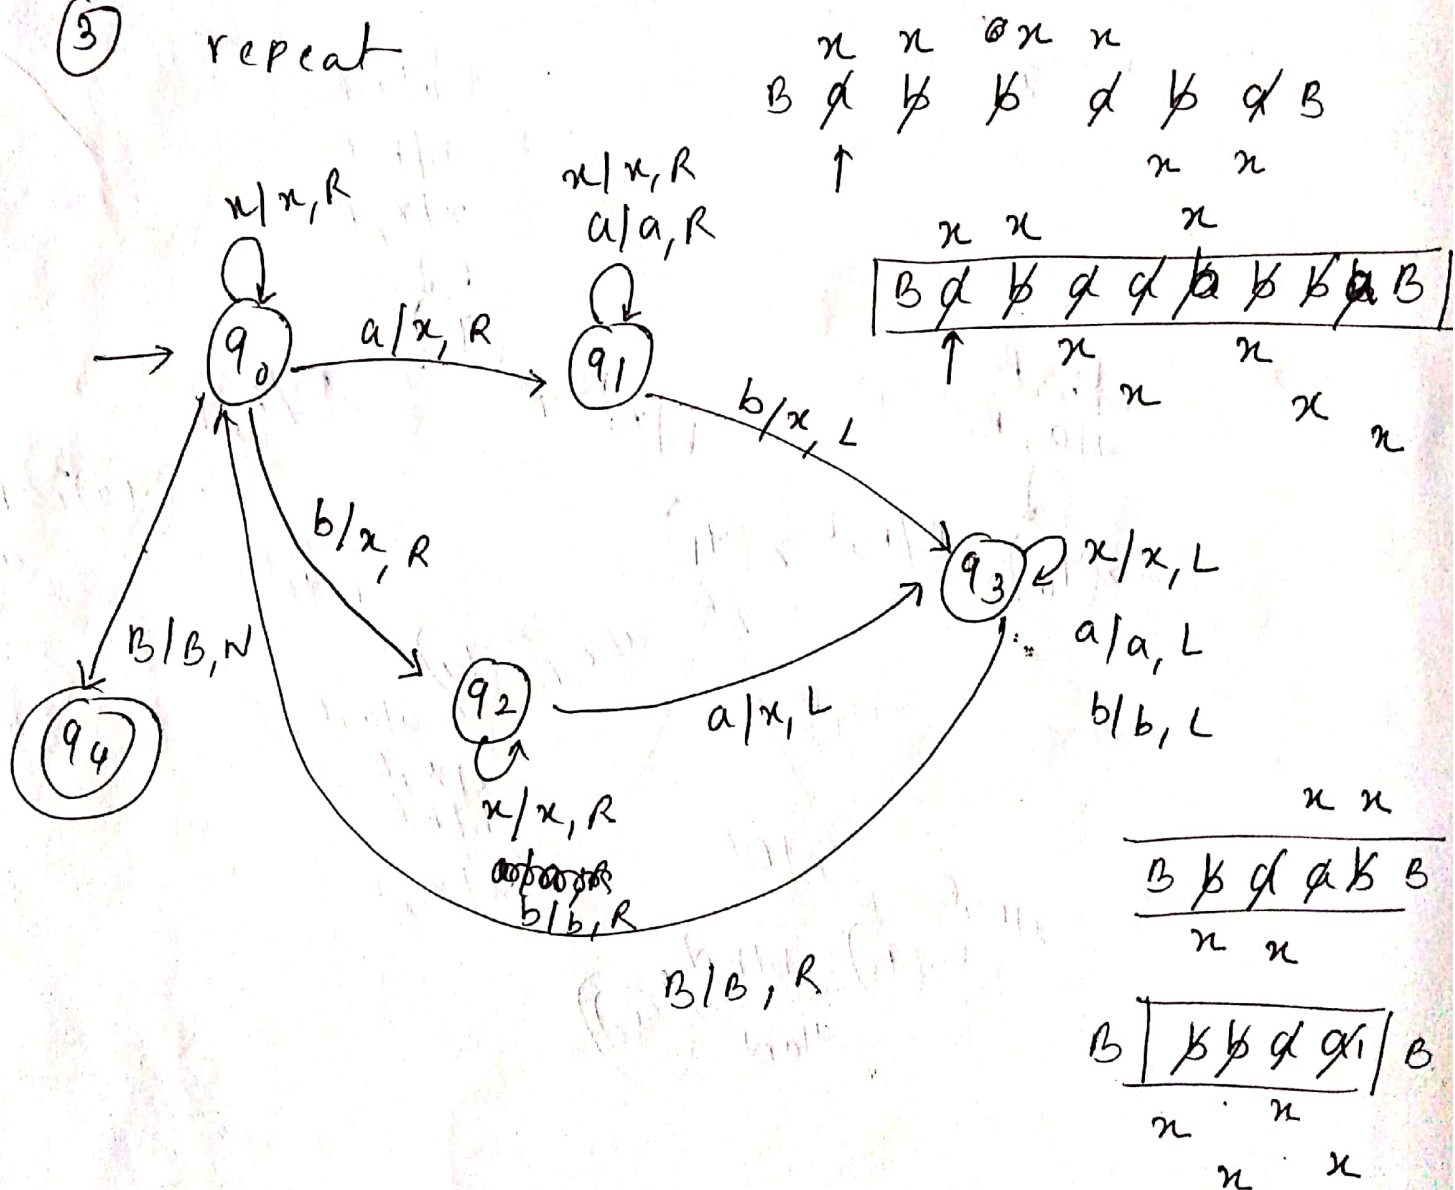 ③ repeat
x x x x
B a b b a b a B
↑ x x
x x x
B a b a a b b b a B
↑ x x
x x
x
x/x, R
x/x, R
a/a, R
→ q0
a/x, R
q1
b/x, L
b/x, R
B/B, N
q4
q2
a/x, L
q3
x/x, L
a/a, L
b/b, L
x/x, R
b/b, R
B/B, R
x x
B b a a b B
x x
B b b a a B
x x
x x